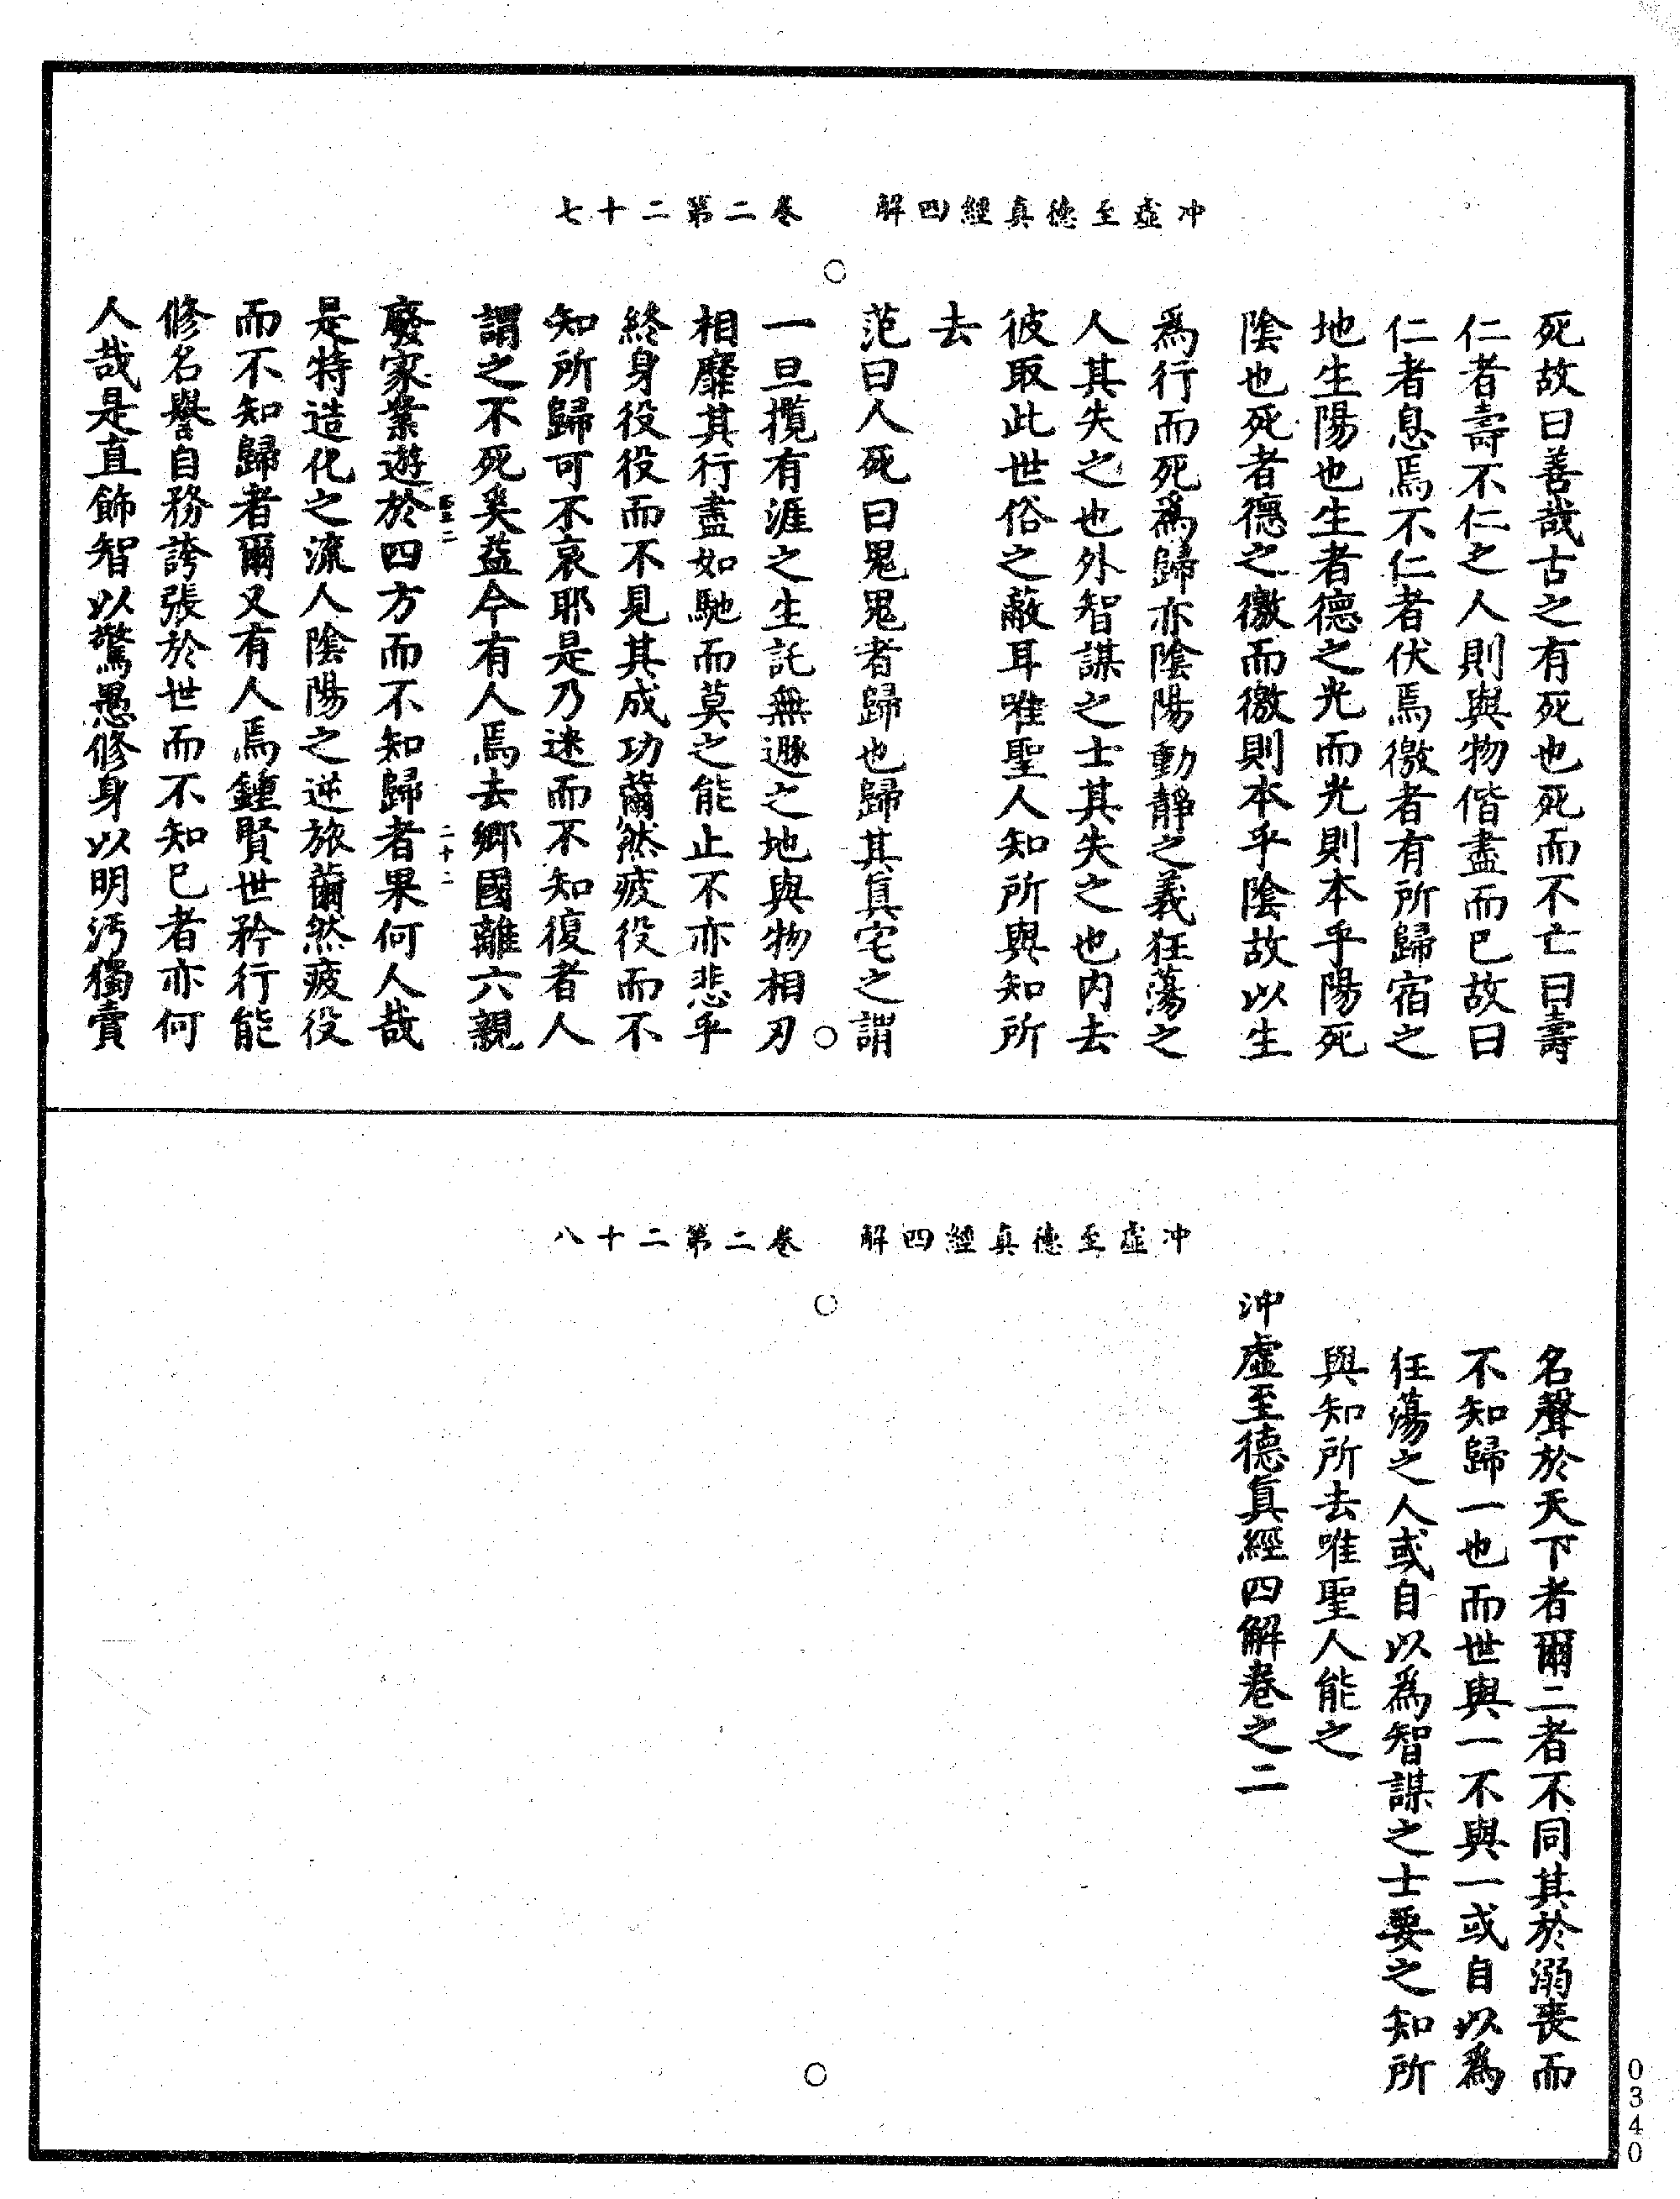 冲虛至德真經四解　卷二第二十七
死故曰善哉古之有死也死而不亡曰壽
仁者壽不仁之人則與物偕盡而已故曰
仁者息焉不仁者伏焉徼者有所歸宿之
地生陽也生者德之光而光則本乎陽死
陰也死者德之徼而徼則本乎陰故以生
爲行而死爲歸亦陰陽動靜之義狂蕩之
人其失之也外智謀之士其失之也内去
彼取此世俗之蔽耳唯聖人知所與知所
去
范曰人死曰鬼鬼者歸也歸其真宅之謂
一旦攬有涯之生託無遯之地與物相刃
相靡其行盡如馳而莫之能止不亦悲乎
終身役役而不見其成功薾然疲役而不
知所歸可不哀耶是乃迷而不知復者人
謂之不死奚益今有人焉去鄉國離六親
二十二
廢家業遊於四方而不知歸者果何人哉
是特造化之流人陰陽之逆旅薾然疲役
而不知歸者爾又有人焉鍾賢世矜行能
修名譽自務誇張於世而不知已者亦何
人哉是直飾智以驚愚修身以明汚獨賣
冲虛至德真經四解　卷二第二十八
名聲於天下者爾二者不同其於溺喪而
不知歸一也而世與一不與一或自以爲
狂蕩之人或自以爲智謀之士要之知所
與知所去唯聖人能之
沖虛至德真經四解卷之二
0340